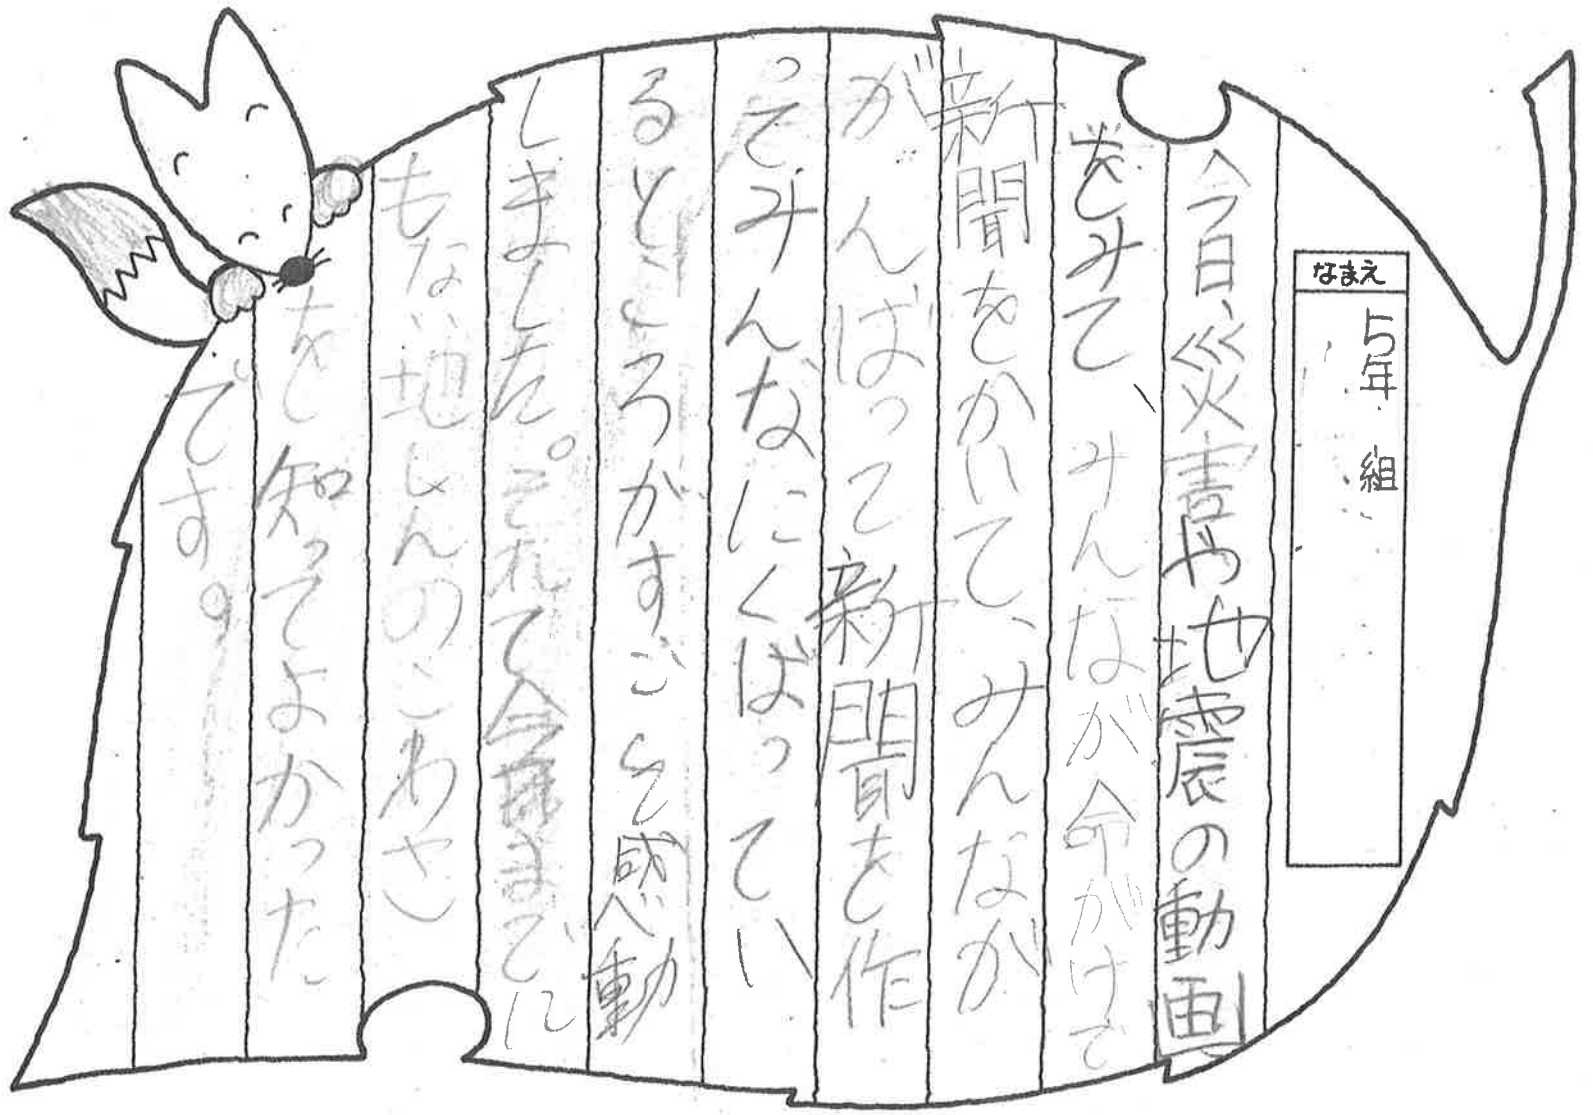 なまえ
5年 組
今日、災害や地震の動画
をみて、みんなが命がけで
新聞をかいて、みんなが
がんばって新聞を作
ってみんなにくばってい
るところがすごく感動
しました。それで今まで に
もない地しんのこわさ
を知ってよかった
です。